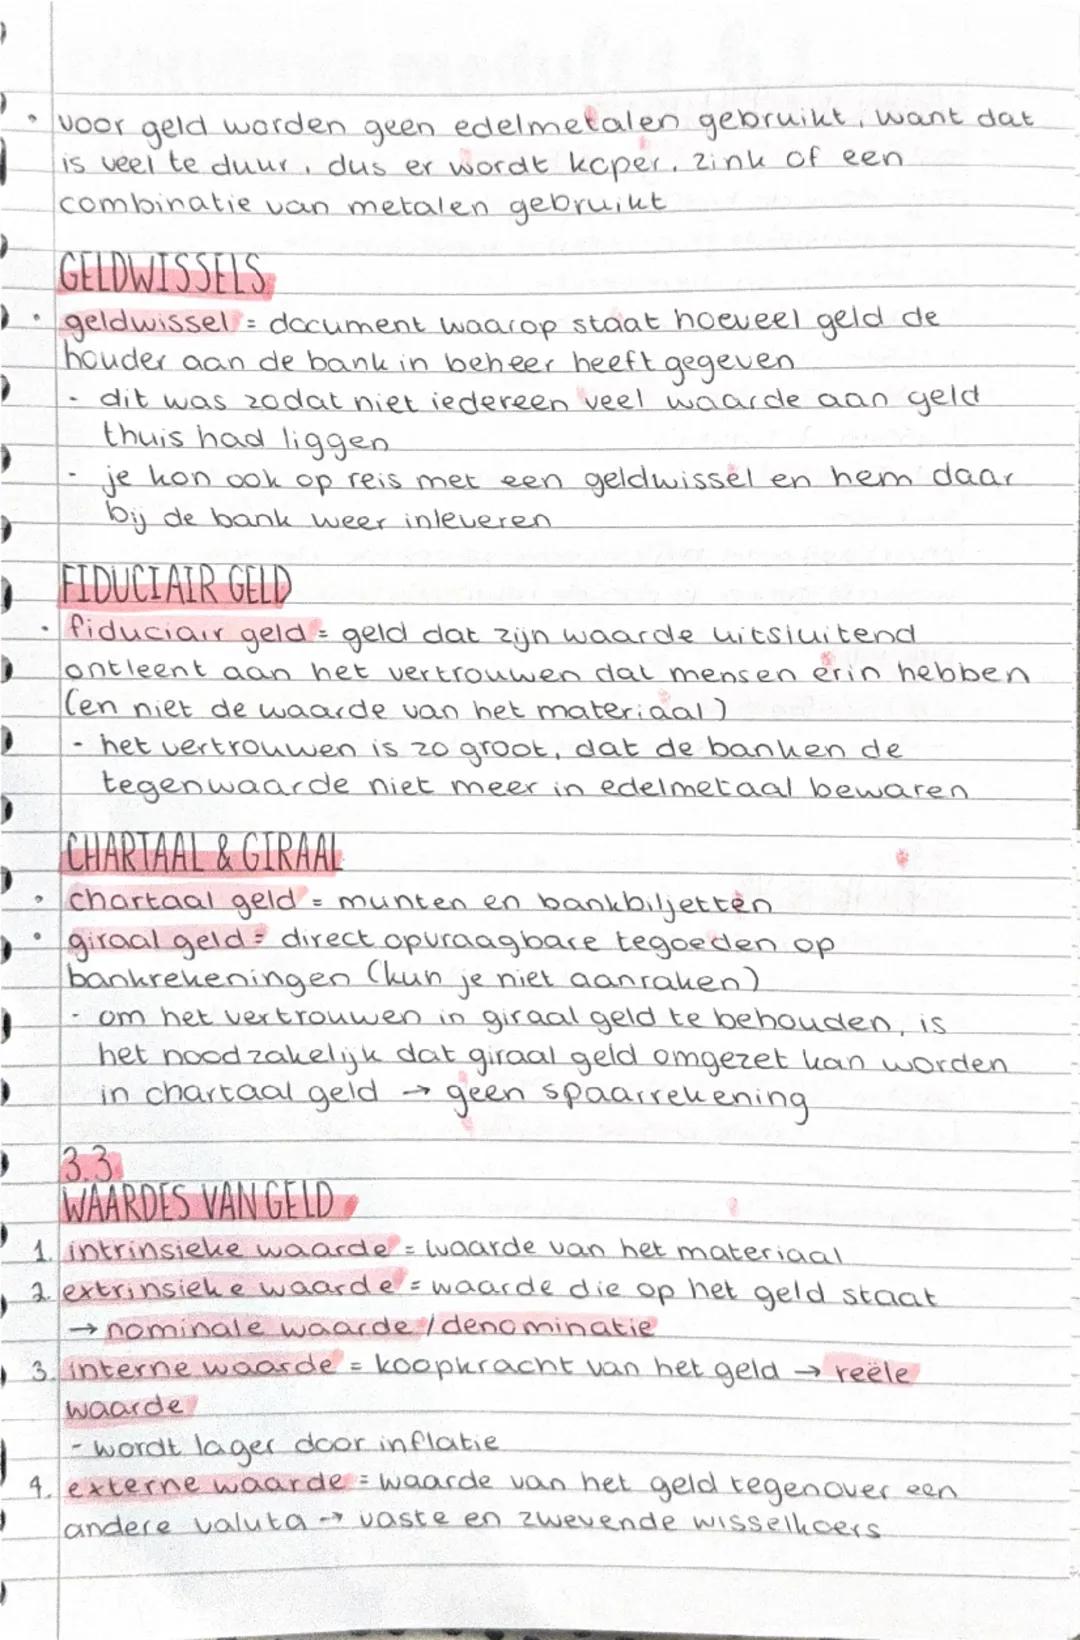 • voor geld worden geen edelmetalen gebruikt, want dat
is veel te duur, dus er wordt koper, zink of een
combinatie van metalen gebruikt
GELDWISSELS
• geldwissel = document waarop staat hoeveel geld de
houder aan de bank in beheer heeft gegeven
- dit was zodat niet iedereen veel waarde aan geld
thuis had liggen
- je kon ook op reis met een geldwissel en hem daar
bij de bank weer inleveren
FIDUCIAIR GELD
• fiduciair geld = geld dat zijn waarde uitsluitend
ontleent aan het vertrouwen dat mensen erin hebben
(en niet de waarde van het materiaal)
- het vertrouwen is zo groot, dat de banken de
tegenwaarde niet meer in edelmetaal bewaren
CHARTAAL & GIRAAL
• chartaal geld = munten en bankbiljetten
• giraal geld = direct opvraagbare tegoeden op
bankrekeningen (kun je niet aanraken)
- om het vertrouwen in giraal geld te behouden, is
het noodzakelijk dat giraal geld omgezet kan worden
in chartaal geld → geen spaarrekening
3.3
WAARDES VAN GELD
1. intrinsieke waarde = waarde van het materiaal
2. extrinsieke waarde = waarde die op het geld staat
→ nominale waarde / denominatie
3. interne waarde = koopkracht van het geld → reële
waarde
- wordt lager door inflatie
4. externe waarde = waarde van het geld tegenover een
andere valuta → vaste en zwevende wisselkoers